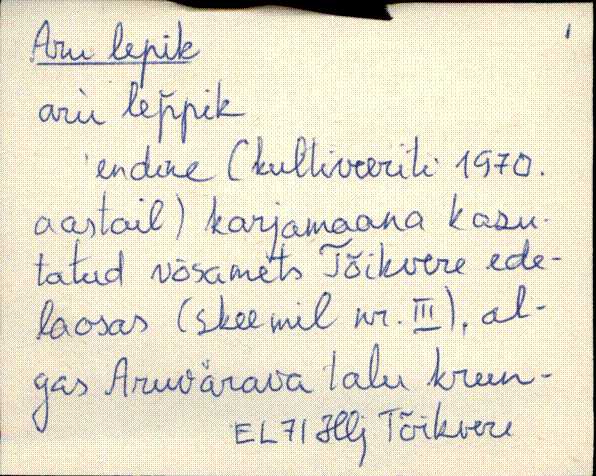 Aru lepik
aru̬ le̬p̆pik
endine (kultiveeriti 1970.
aastail) karjamaana kasu-
tatud võsamets Tõikvere ede-
laosas (skeemil nr. III), al-
gas Aruvärava talu kruun-
EL 71 Hlj Tõikvere